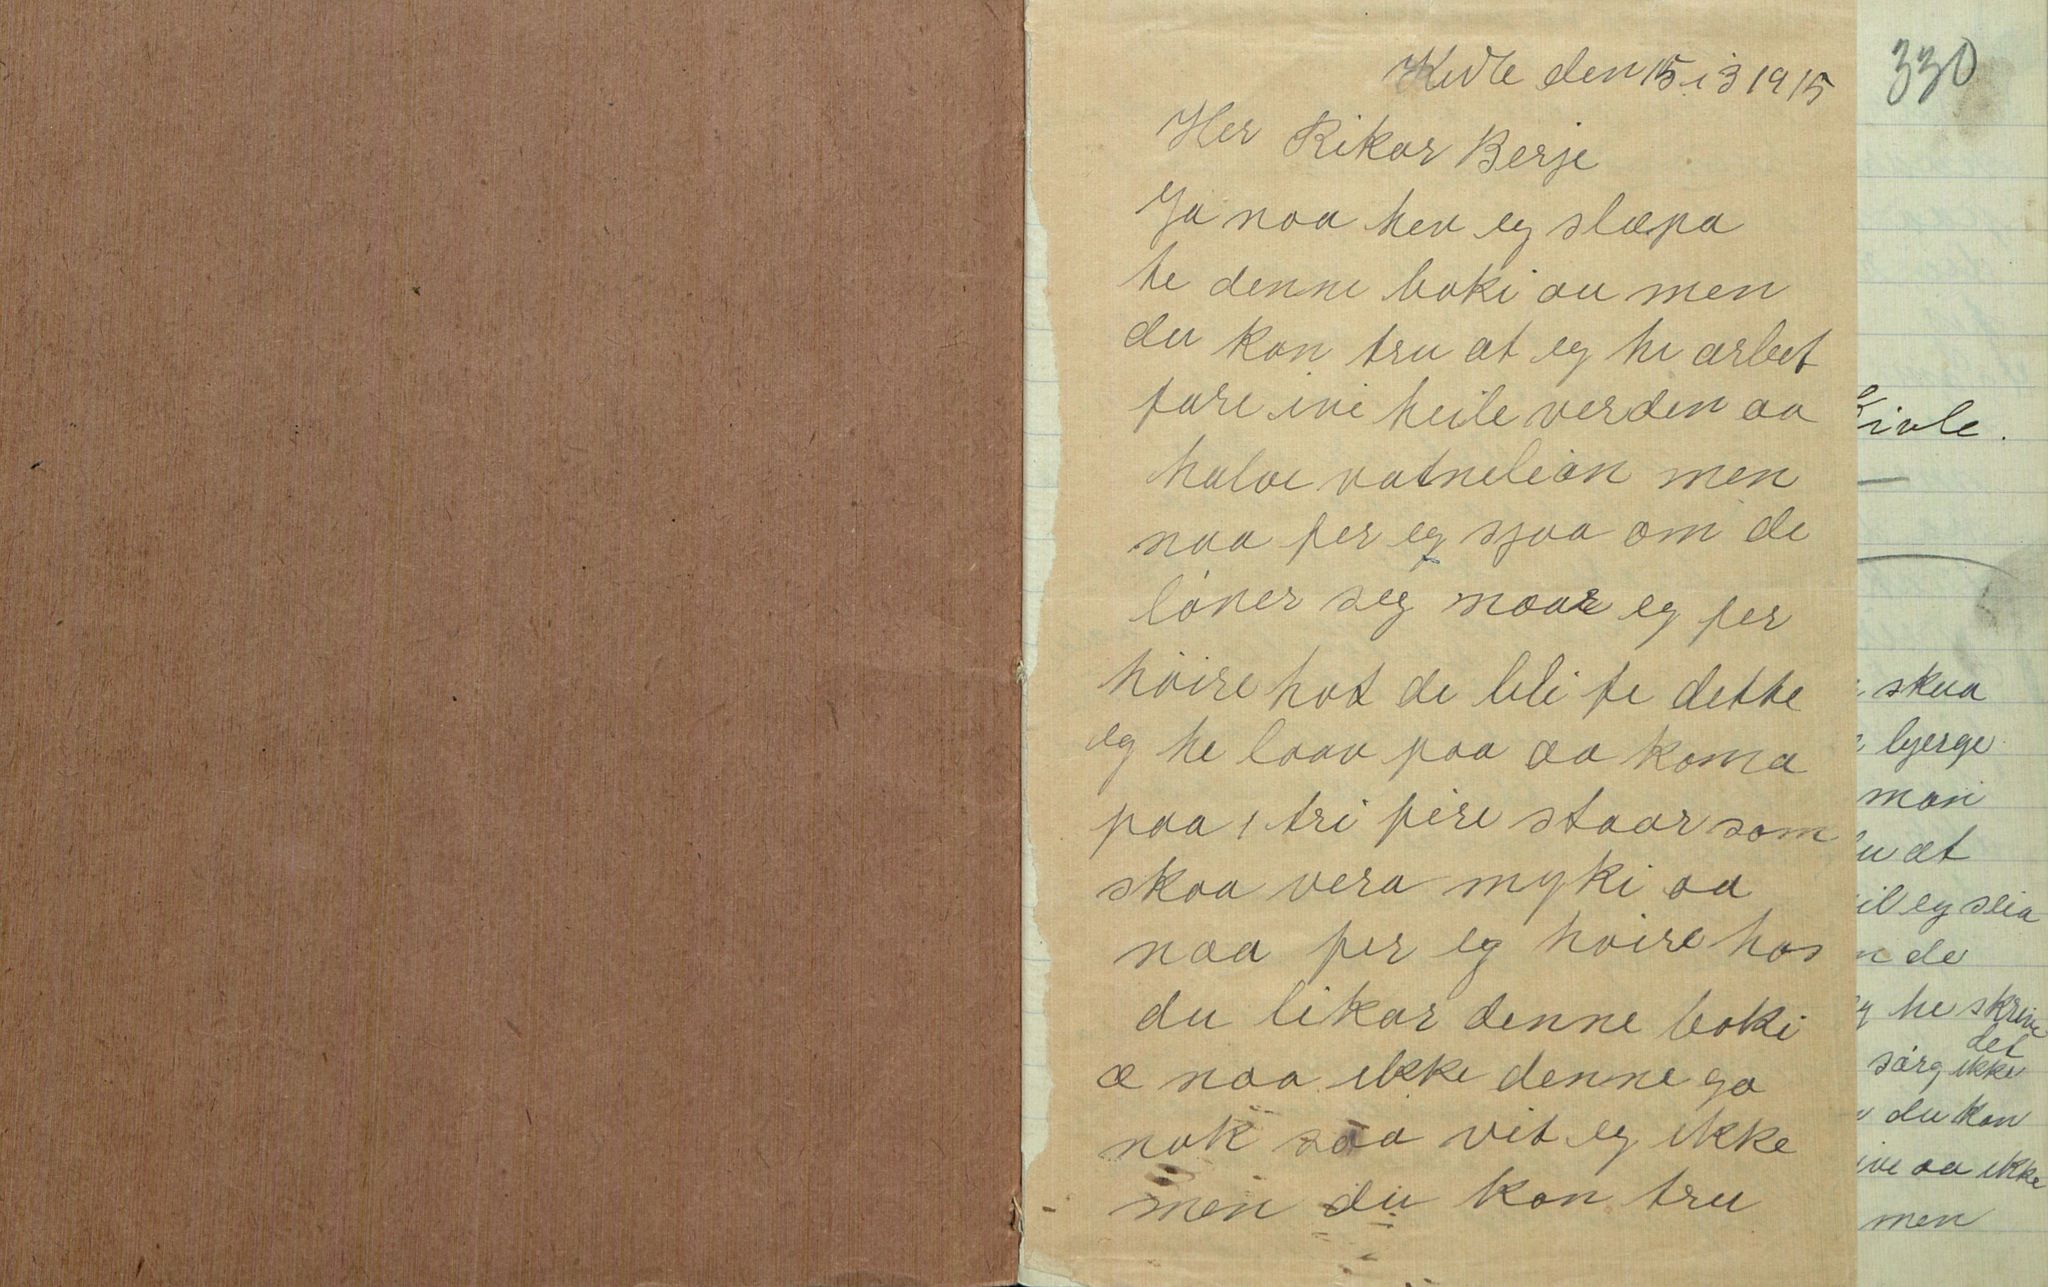 Kivle den 15 i 3 1915
330
Her Rikar Berje
Ja naa hev eg slæpa
te denne boki au men
du kan tru at eg he arbet
fare ivi heile verden aa
halve vatneleian men
naa fer eg sjaa om de
löner seg naar eg fer
höire hot de bli te dette
eg he laav paa aa koma
paa, tri fire staar som
skaa vera myki aa
naa fer eg höire hos
du likar denne boki
æ naa ikke denne go
nok saa vit eg ikke
men du kan tru
Kivle.
skaa
bjerge
man
at
eg seia
de
he skrive
det
sörg ikke
du kan
aa ikke
men